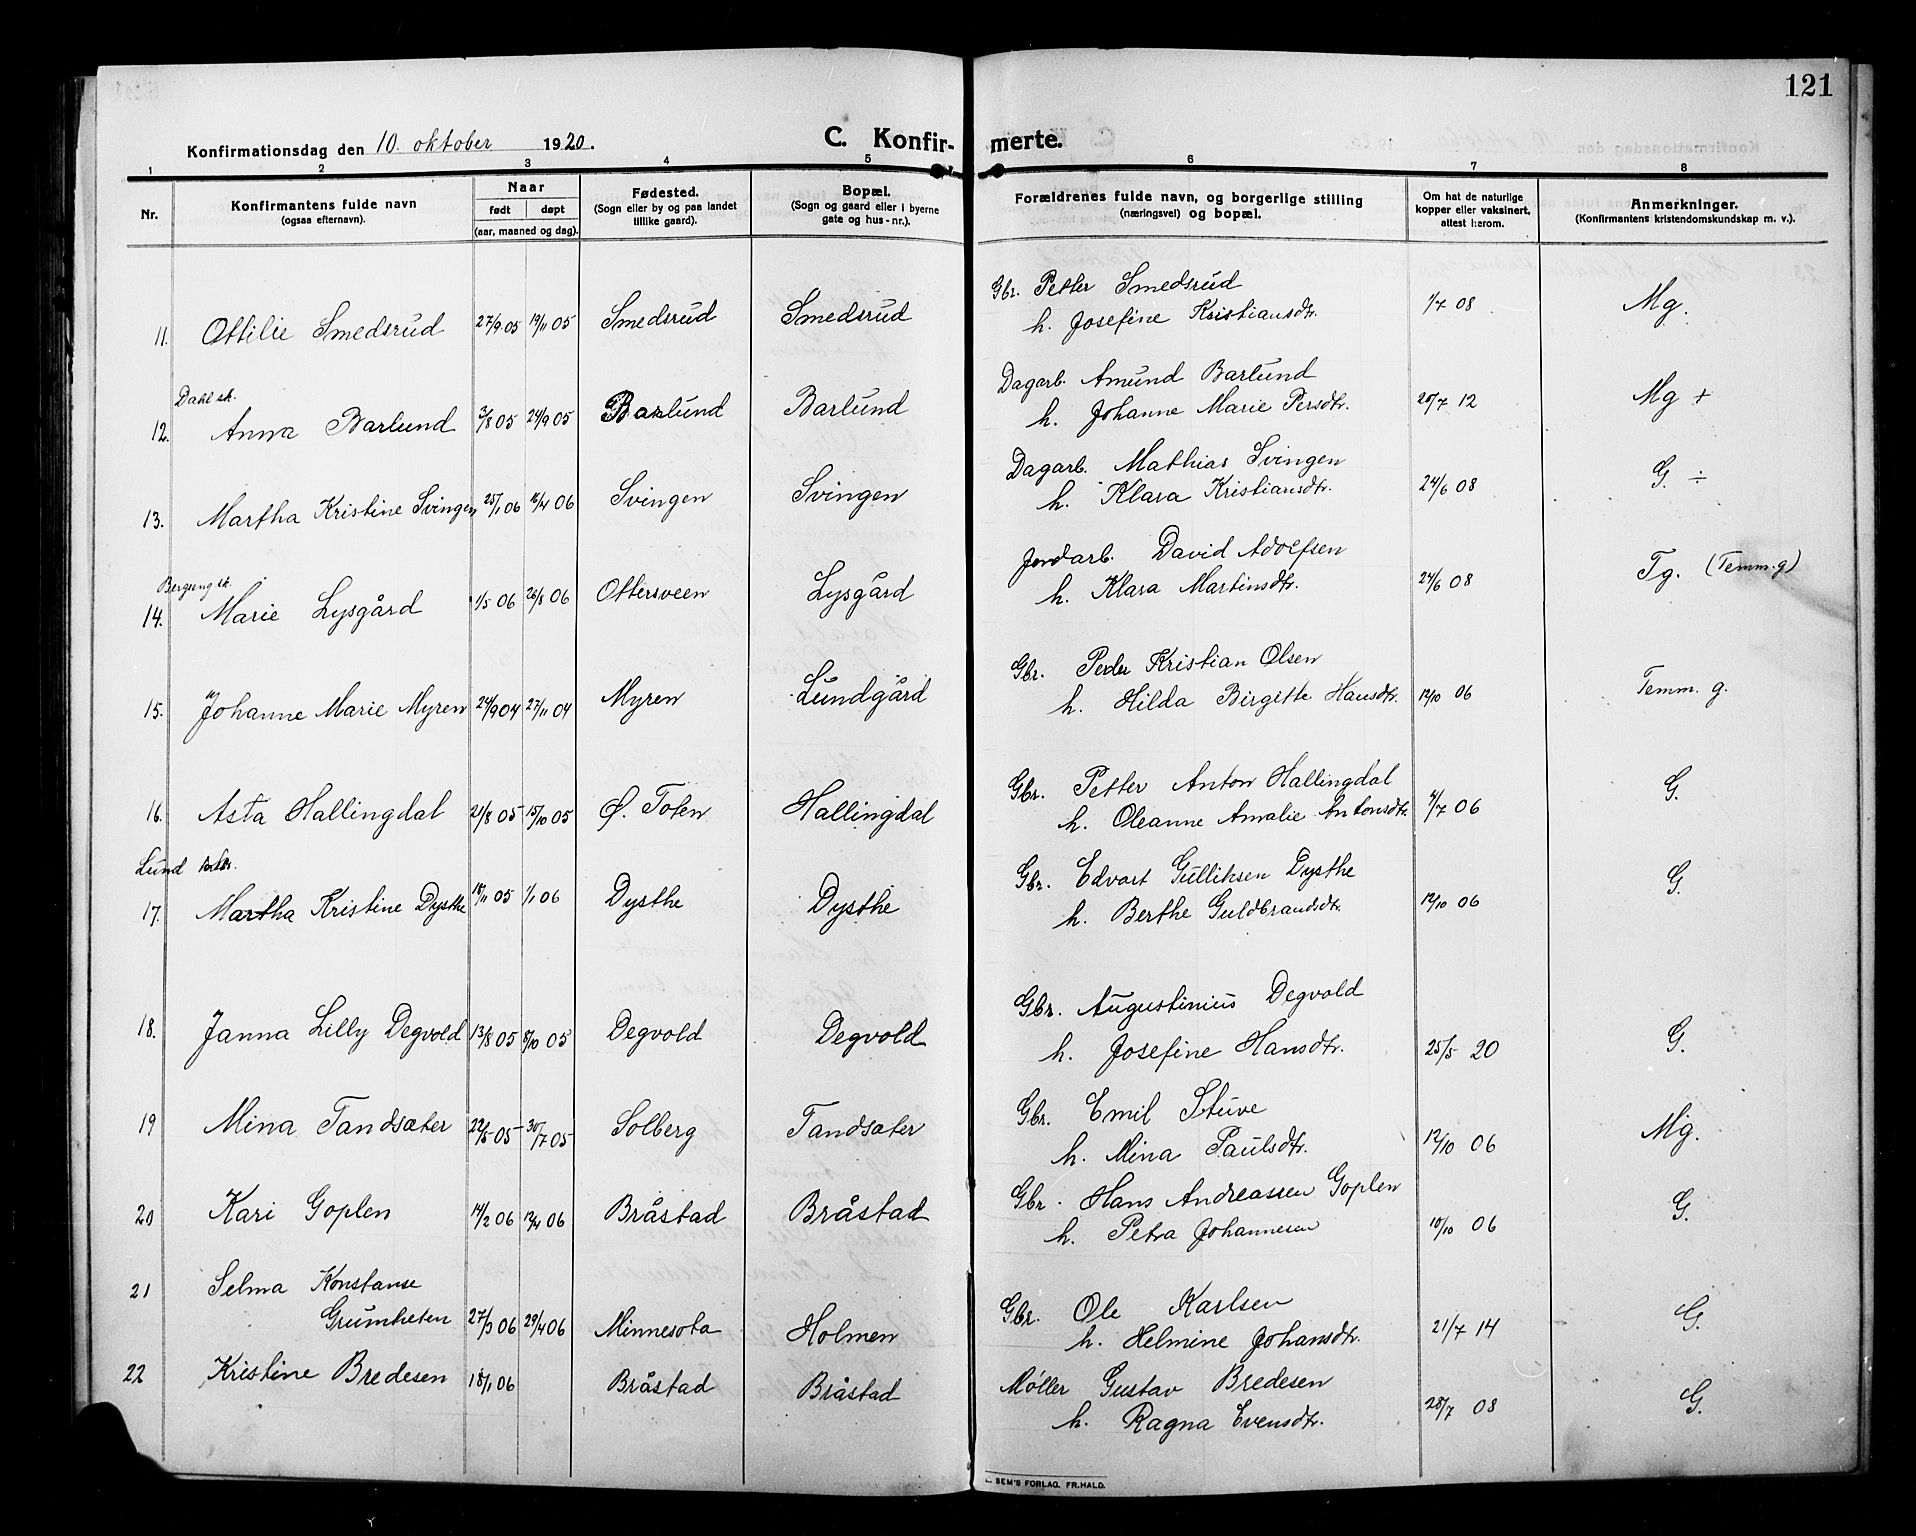 121
Konfirmationsdag den 10. oktober 1920.
C. Konfir- merte.
1 2 3 4 5 6 7 8
Nr.
Konfirmantens fulde navn
(ogsaa efternavn).
Naar
født døpt
(aar, maaned og dag).
Fødested.
(Sogn eller by og paa landet
tillike gaard).
Bopæl.
(Sogn og gaard eller i byerne
gate og hus-nr.).
Forældrenes fulde navn, og borgerlige stilling
(næringsvei) og bopæl.
Om hat de naturlige
kopper eller vaksinert,
attest herom.
Anmerkninger.
(Konfirmantens kristendomskundskap m. v.).
Gbr. Petter Smedsrud
11. Ottilie Smedsrud 27/9 05 19/11 05 Smedsrud Smedsrud h. Josefine Kristiansdtr. 1/7 08 Mg.
Dahl sk.
Dagarb. Amund Barlund
12. Anna Barlund 3/8 05 24/9 05 Barlund Barlund h. Johanne Marie Persdtr. 20/7 12 Mg +
Dagarb. Mathias Svingen
13. Martha Kristine Svingen 25/1 06 16/4 06 Svingen Svingen h. Klara Kristiansdtr. 24/6 08 G. ÷
Jordarb. David Adolfsen
14. Marie Lysgård 1/5 06 26/8 06 Ottersveen Lysgård h. Klara Martinsdtr. 24/6 08 Tg. (Temm. g)
Gbr. Peder Kristian Olsen
15. Johanne Marie Myren 24/9 04 27/11 04 Myren Lundgård h. Hilda Birgitte Hansdtr. 12/10 06 Temm. g.
Gbr. Petter Anton Hallingdal
16. Asta Hallingdal 21/8 05 15/10 05 Ø. Toten Hallingdal h. Oleanne Amalie Antonsdtr. 4/7 06 G.
Lund
Gbr. Edvart Gulliksen Dysthe
17. Martha Kristine Dysthe 18/11 05 1/1 06 Dysthe Dysthe h. Berthe Guldbrandsdtr. 12/10 06 G.
Gbr. Augustinius Degvold
18. Janna Lilly Degvold 13/8 05 8/10 05 Degvold Degvold h. Josefine Hansdtr. 25/5 20 G.
Gbr. Emil Stuve
19 Mina Tandsæter 22/5 05 30/7 05 Solberg Tandsæter h. Mina Paulsdtr. 12/10 06 Mg.
Gbr. Hans Andreassen Goplen
20 Kari Goplen 14/2 06 13/4 06 Bråstad Bråstad h. Petra Johannesen 10/10 06 G.
21 Selma Konstanse
Grumheten 27/3 06 29/4 06 Minnesota Holmen Gbr. Ole Karlsen
h. Helmine Johansdtr. 21/7 14 G.
22 Kristine Bredesen 18/1 06 Bråstad Bråstad Møller Gustav Bredesen
h. Ragna Evensdtr. 28/7 08 G.
SEM'S FORLAG, FR.HALD.